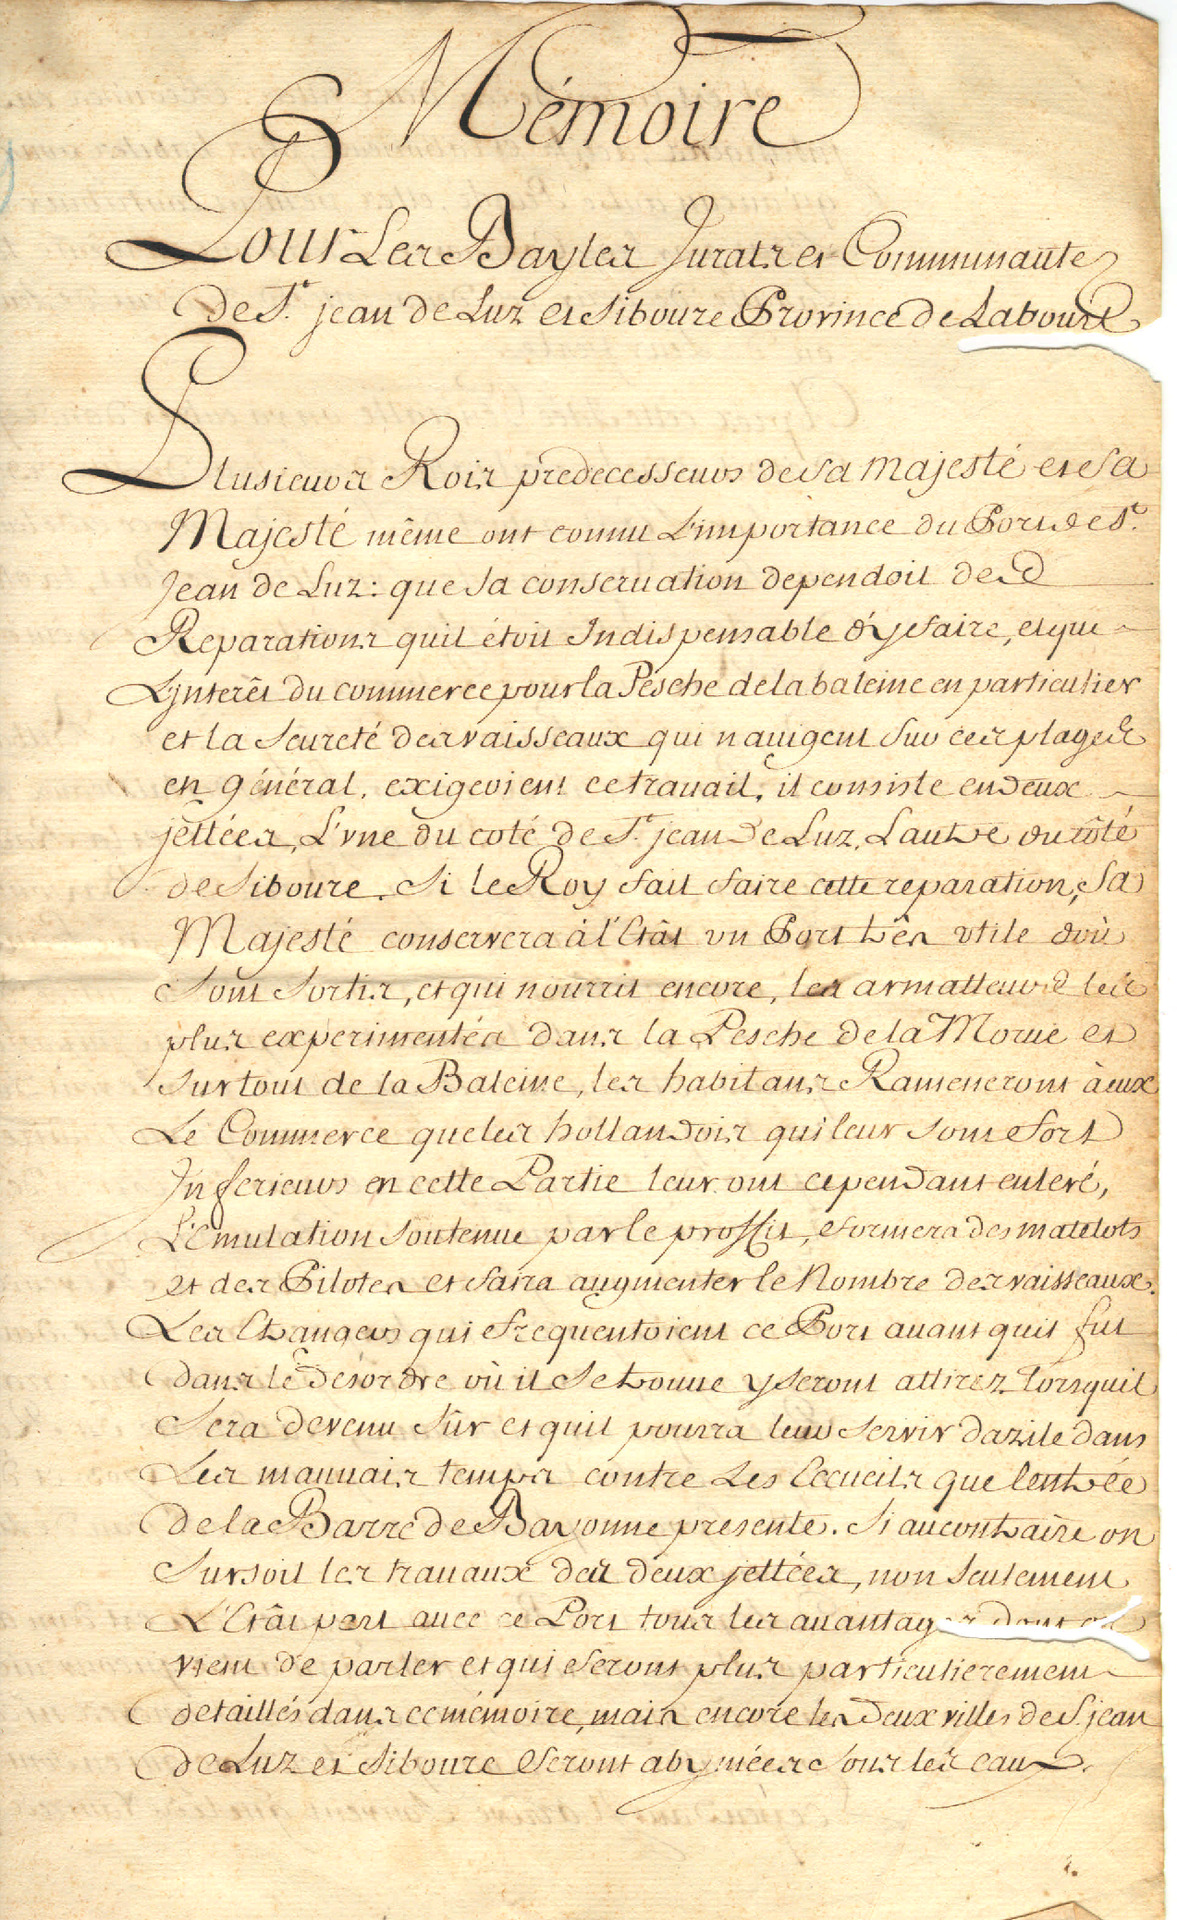 Mémoire
Pour Les Bayles Jurats et Communautés
de St. jean de Luz et Siboure Province de Labourt
Plusieurs Rois predecesseurs de Sa Majesté et Sa
Majesté même ont connu L'importance du Port de St.
Jean de Luz: que sa conservation dependoit des
Reparations quil étoit Indispensable d'y faire, et que
L'jnterêt du commerce pour la Pesche de la baleine en particulier
et la Seureté des vaisseaux qui nauigent sur ces plages
en général, exigeoient ce trauail, il consiste en deux
jettées, L'vne du coté de St. jean de Luz, Lautre du côté
de Siboure. Si le Roy fait faire cette reparation, Sa
Majesté conservera à l'Etât vn Port très vtile d'où
Sont Sortis, et qui nourrit encore, les armatteurs les
plus experimentés dans la Pesche de la Morue et
surtout de la Baleine, les habitans Rameneront à eux
Le Commerce que les hollandois qui leur sont fort
Inferieurs en cette Partie leur ont cependant enlevé,
L'Emulation soutenue par le proffit, formera des matelots
et des Pilotes et faira augmenter le Nombre des vaisseaux.
Les Etrangers qui frequentoient ce Port auant quil fut
dans le desordre où il se trouve y seront attirez Lorsquil
Sera devenu Sûr et quil pourra leur servir dazile dans
Les mauuais temps contre Les Ecceuils que lentrée
de la Barre de Bayonne presente. Si au contraire on
Sursoit les trauaux des deux jettées, non seulement
L'Etât pert auec ce Port tous les auantages dont on
vient de parler et qui seront plus particulierement
detaillés dans ce mémoire, mais encore les deux villes de St. jean
de Luz et Siboure seront abymées sous les eaux.
1.